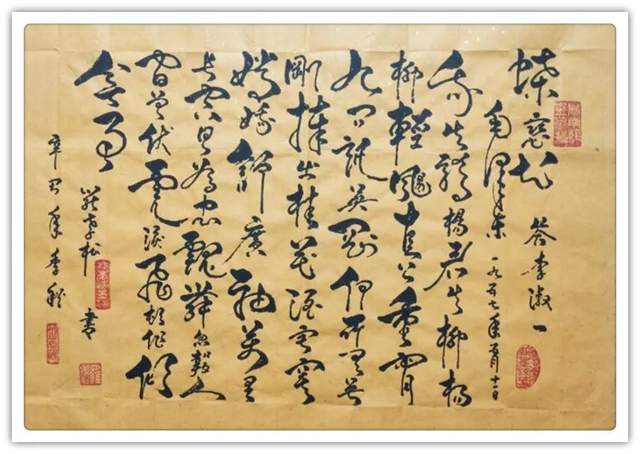 蝶戀花 答李淑一
毛澤東 一九五七年五月十一日
我失驕楊君失柳楊
柳輕颺直上重霄
九問訊吳剛何所有吳
剛捧出桂花酒寂寞
嫦娥舒廣袖萬里
長空且為忠魂舞忽報人
間曾伏虎淚飛頓作傾
盆雨
孝松 書
辛 年季秋